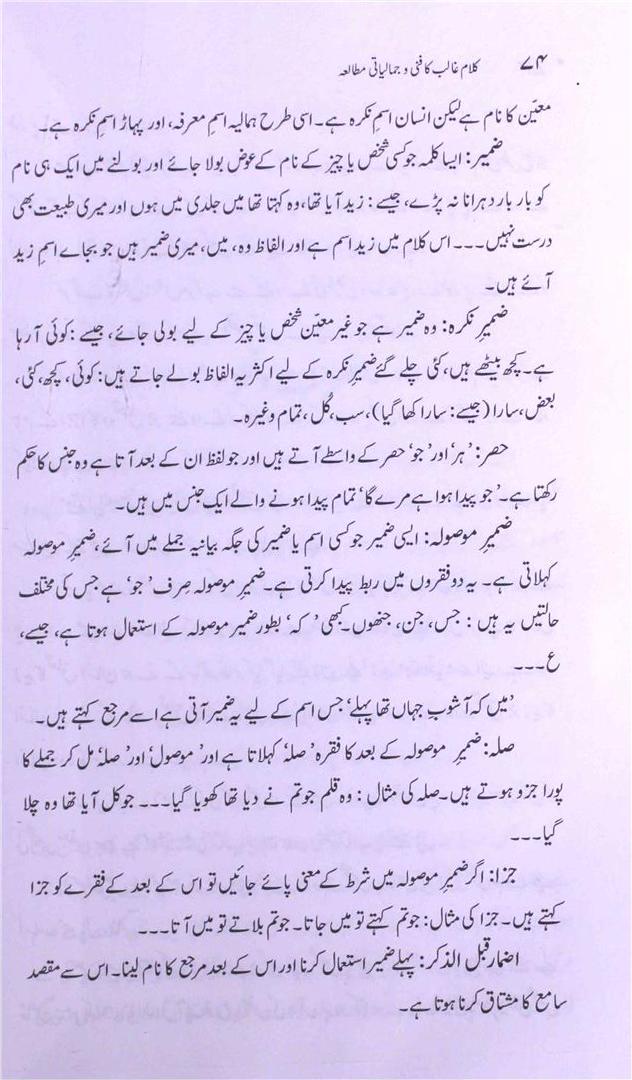 ۷۴ کلام غالب کا فنی و جمالیاتی مطالعہ
معیّن کا نام ہے لیکن انسان اسمِ نکرہ ہے۔ اسی طرح ہمالیہ اسمِ معرفہ، اور پہاڑ اسمِ نکرہ ہے۔
ضمیر: ایسا کلمہ جو کسی شخص یا چیز کے نام کے عوض بولا جائے اور بولنے میں ایک ہی نام
کو بار بار دہرانا نہ پڑے، جیسے: زید آیا تھا، وہ کہتا تھا میں جلدی میں ہوں اور میری طبیعت بھی
درست نہیں۔۔۔ اس کلام میں زید اسم ہے اور الفاظ وہ، میں، میری ضمیر ہیں جو بجاے اسمِ زید
آئے ہیں۔
ضمیرِ نکرہ: وہ ضمیر ہے جو غیر معیّن شخص یا چیز کے لیے بولی جائے، جیسے: کوئی آ رہا
ہے۔ کچھ بیٹھے ہیں، کئی چلے گئے ضمیرِ نکرہ کے لیے اکثر یہ الفاظ بولے جاتے ہیں: کوئی، کچھ، کئی،
بعض، سارا (جیسے: سارا کھا گیا)، سب، کُل، تمام وغیرہ۔
حصر: ’ہر‘ اور ’جو‘ حصر کے واسطے آتے ہیں اور جو لفظ ان کے بعد آتا ہے وہ جنس کا حکم
رکھتا ہے۔ ’جو پیدا ہوا ہے مرے گا‘ تمام پیدا ہونے والے ایک جنس میں ہیں۔
ضمیرِ موصولہ: ایسی ضمیر جو کسی اسم یا ضمیر کی جگہ بیانیہ جملے میں آئے، ضمیرِ موصولہ
کہلاتی ہے۔ یہ دو فقروں میں ربط پیدا کرتی ہے۔ ضمیرِ موصولہ صِرف ’جو‘ ہے جس کی مختلف
حالتیں یہ ہیں: جس، جن، جنھوں۔ کبھی ’کہ‘ بطور ضمیر موصولہ کے استعمال ہوتا ہے، جیسے،
ع۔۔۔
’میں کہ آشوبِ جہاں تھا پہلے‘ جس اسم کے لیے یہ ضمیر آتی ہے اسے مرجع کہتے ہیں۔
صلہ: ضمیرِ موصولہ کے بعد کا فقرہ ’صلہ‘ کہلاتا ہے اور ’موصول‘ اور ’صلہ‘ مل کر جملے کا
پورا جزو ہوتے ہیں۔ صلہ کی مثال: وہ قلم جو تم نے دیا تھا کھویا گیا۔۔۔ جو کل آیا تھا وہ چلا
گیا۔۔۔
جزا: اگر ضمیرِ موصولہ میں شرط کے معنی پائے جائیں تو اس کے بعد کے فقرے کو جزا
کہتے ہیں۔ جزا کی مثال: جو تم کہتے تو میں جاتا۔ جو تم بلاتے تو میں آتا۔۔۔
اضمار قبل الذکر: پہلے ضمیر استعمال کرنا اور اس کے بعد مرجع کا نام لینا۔ اس سے مقصد
سامع کا مشتاق کرنا ہوتا ہے۔